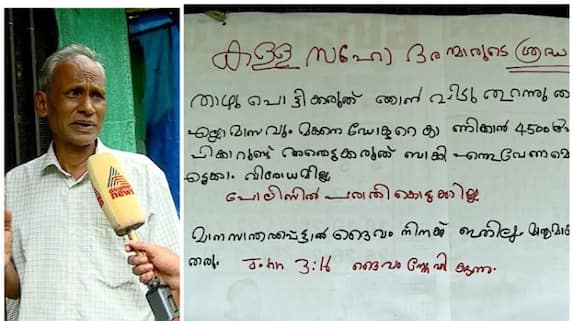 കള്ള സഹോദരന്മാരുടെ ശ്രദ്ധ
താഴു പൊട്ടിക്കരുത് ഞാൻ വീടു തുറന്നു ത
എല്ലാ മാസവും മകനെ ഡോക്ടറെ കാണിക്കാൻ 4500
പിക്കാറുണ്ട് അതെടുക്കരുത് ബാക്കി എന്തുവേണമെ
ടുക്കാം. വിരോധമില്ല
പോലീസിൽ പരാതി കൊടുക്കില്ല
മാനസാന്തരപ്പെട്ടാൽ ദൈവം നിനക്ക്
തരും. John 3:16 ദൈവം സ്നേഹിക്കുന്നു.
asianet
news